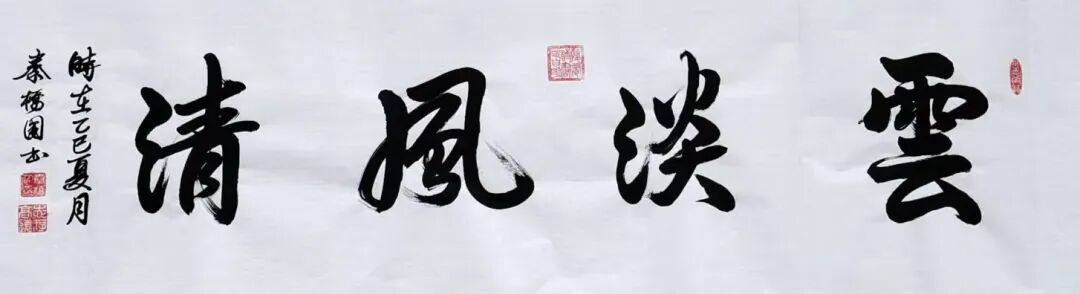 雲淡風清
時在乙巳夏月
秦橋園书